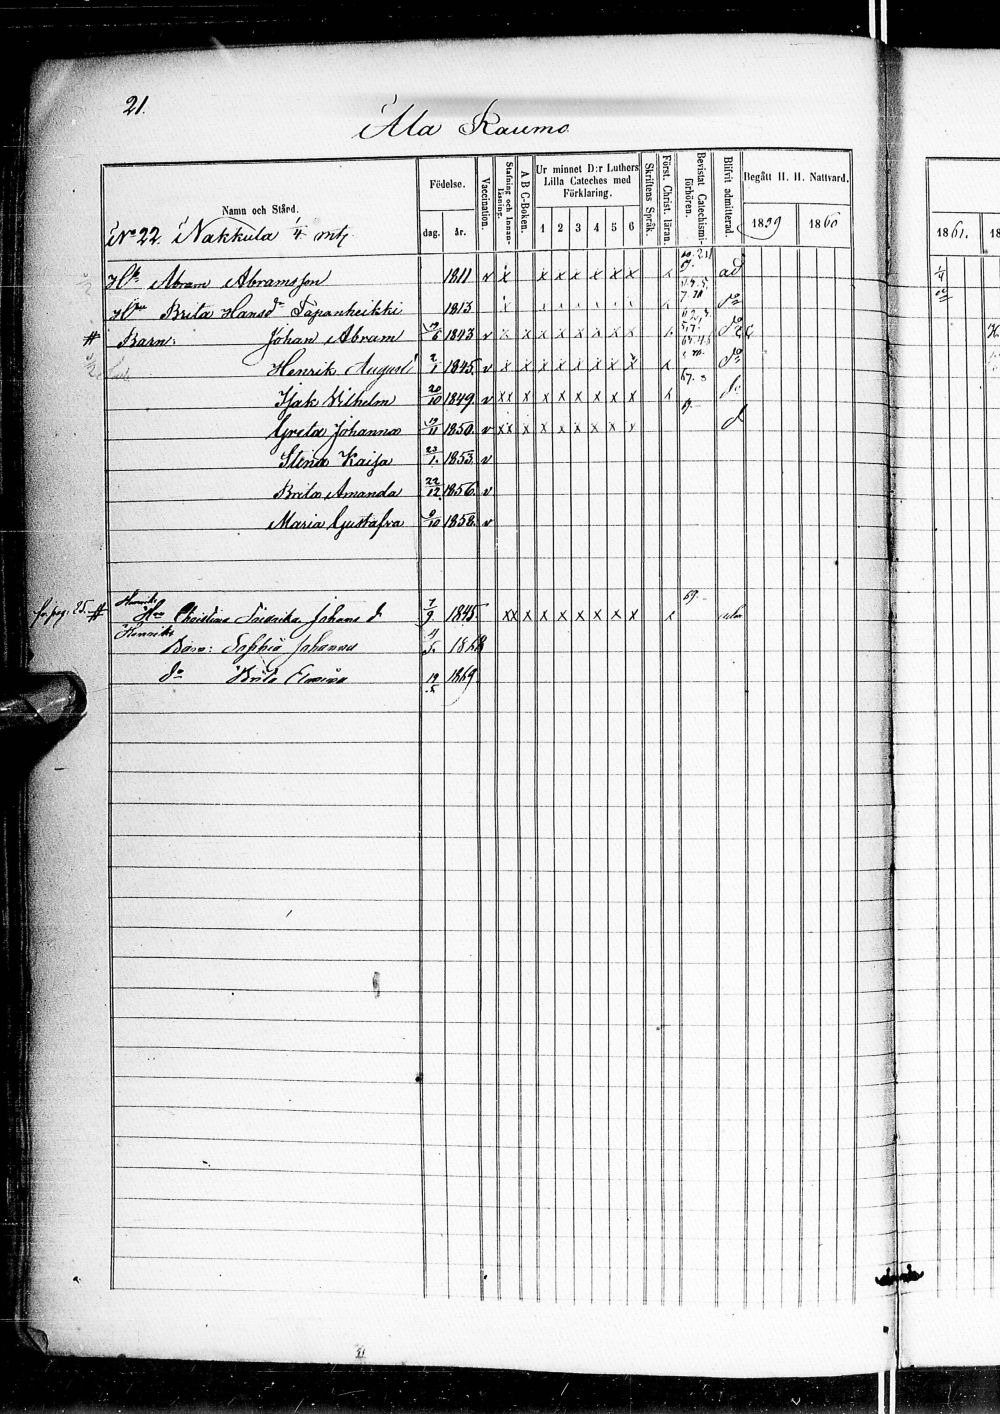 21.
Ala Raumo
Namn och Stånd.
Födelse.
dag. år.
Vaccination.
Stafning och Innanläsning.
A B C-Boken.
Ur minnet D:r Luthers Lilla Cateches med Förklaring.
1 2 3 4 5 6
Skriftens Språk.
Först. Christ. läran.
Bevistat Catechismiförhören.
Blifvit admitterad.
Begått H. H. Nattvard.
1859 1860
1861.
No 22. Nakkula 1/4 mtl
Abram Abramsson 1811 v x x x x x x x x ad
Brita Hansd:r Tapanheikki 1813 do
# Barn: Johan Abram 19/6 1843 v x x x x x x x x do
Henrik August 2/1 1845. v x x x x x x x x x do
Isak Vilhelm 20/10 1849 v xx x x x x x x x x
Greta Johanna 19/11 1850. v xx x x x x x x
Stina Kaisa 23/1. 1853. v
Brita Amanda 22/12 1856. v
Maria Gustafva 9/10 1858. v
fr. pag. 25. # Henriks Hu Christina Fredrika Johans d 7/9 1845. xx x x x x x x x x 69.
Henriks
Barn: Johannes 1868
do Brita 19/5 1869